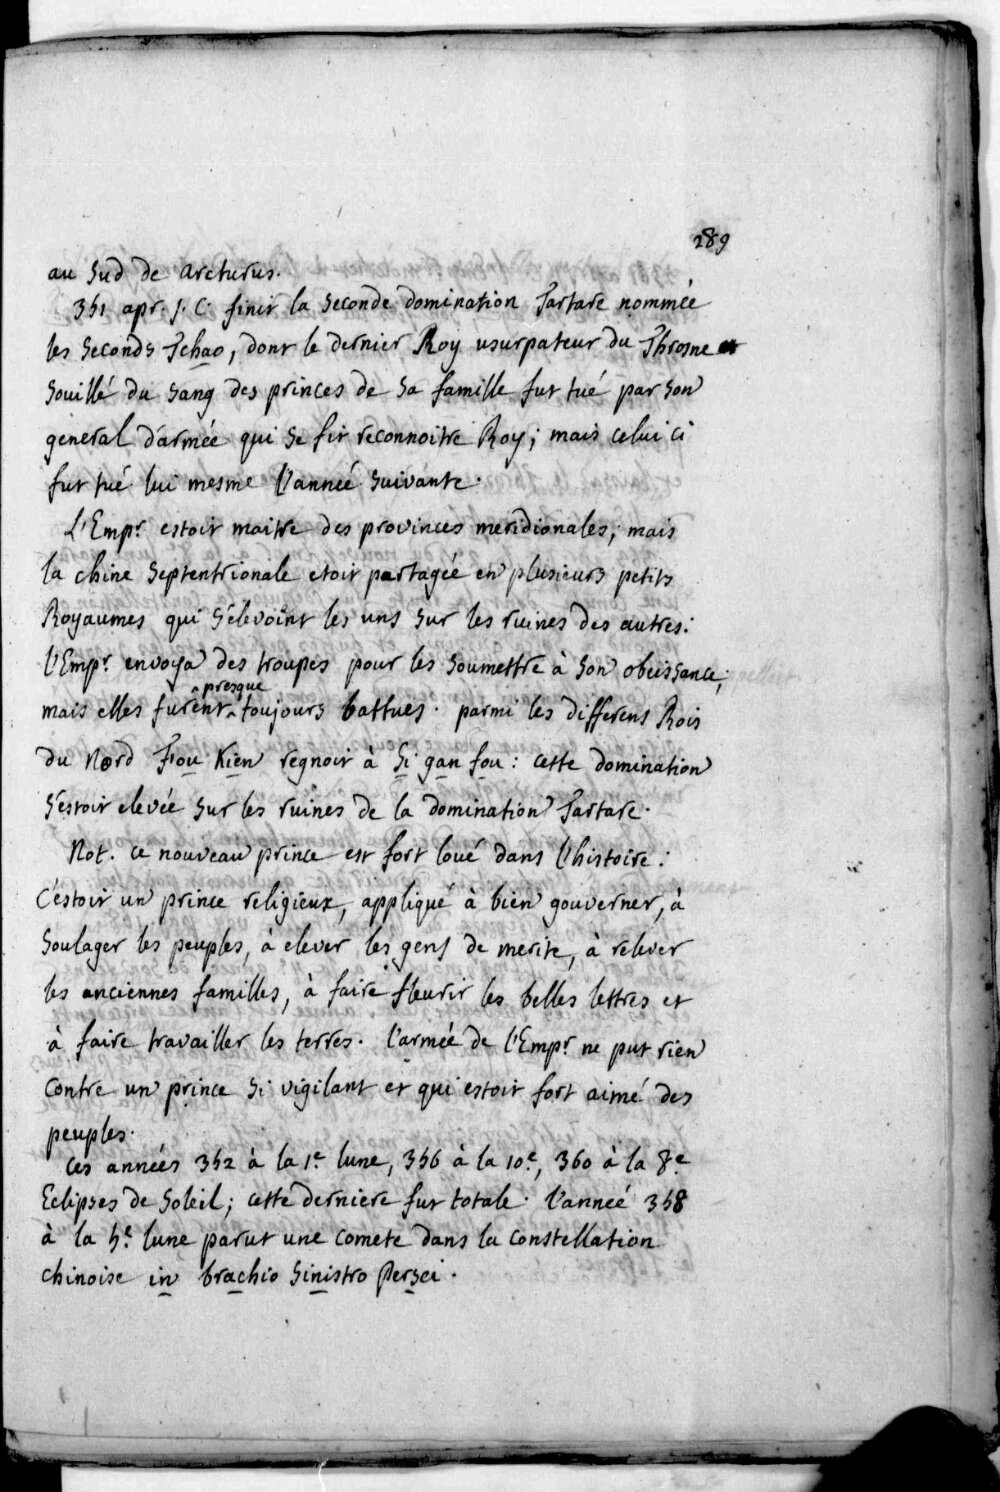 289
au Sud de arcturus.
351 apr. J. C. finit la Seconde domination Tartare nommée
les Seconds Tchao, dont le dernier Roy usurpateur du Throsne et
Souillé du Sang des princes de Sa famille fut tué par son
general d'armée qui Se fit reconnoitre Roy; mais celui ci
fut tué lui mesme l'anneé Suivante.
L'Empr. estoit maitre des provinces meridionales; mais
la chine Septentrionale etoit partagée en plusieurs petits
Royaumes qui S'élevoint les uns Sur les ruines des autres:
l'Empr. envoya des troupes pour les Soumettre à Son obeissance;
mais elles furent ^presque toujours battues. parmi les differens Rois
du Nord Fou Kien regnoit à Si gan fou: cette domination
S'estoit elevée Sur les ruines de la domination Tartare.
Not. ce nouveau prince est fort loué dans l'histoire:
C'éstoit un prince religieux, appliqué à bien gouverner, à
Soulager les peuples, à elever les gens de merite, à relever
les anciennes familles, à faire fleurir les belles lettres et
à faire travailler les terres. l'armée de l'Empr. ne put rien
Contre un prince Si vigilant et qui estoit fort aimé des
peuples.
Ces années 352 à la 1e. lune, 356 à la 10e., 360 à la 8e
Eclipses de Soleil; cette derniere fut totale. l'anneé 358
à la 5e. lune parut une comete dans la constellation
chinoise in brachio Sinistro Persei.